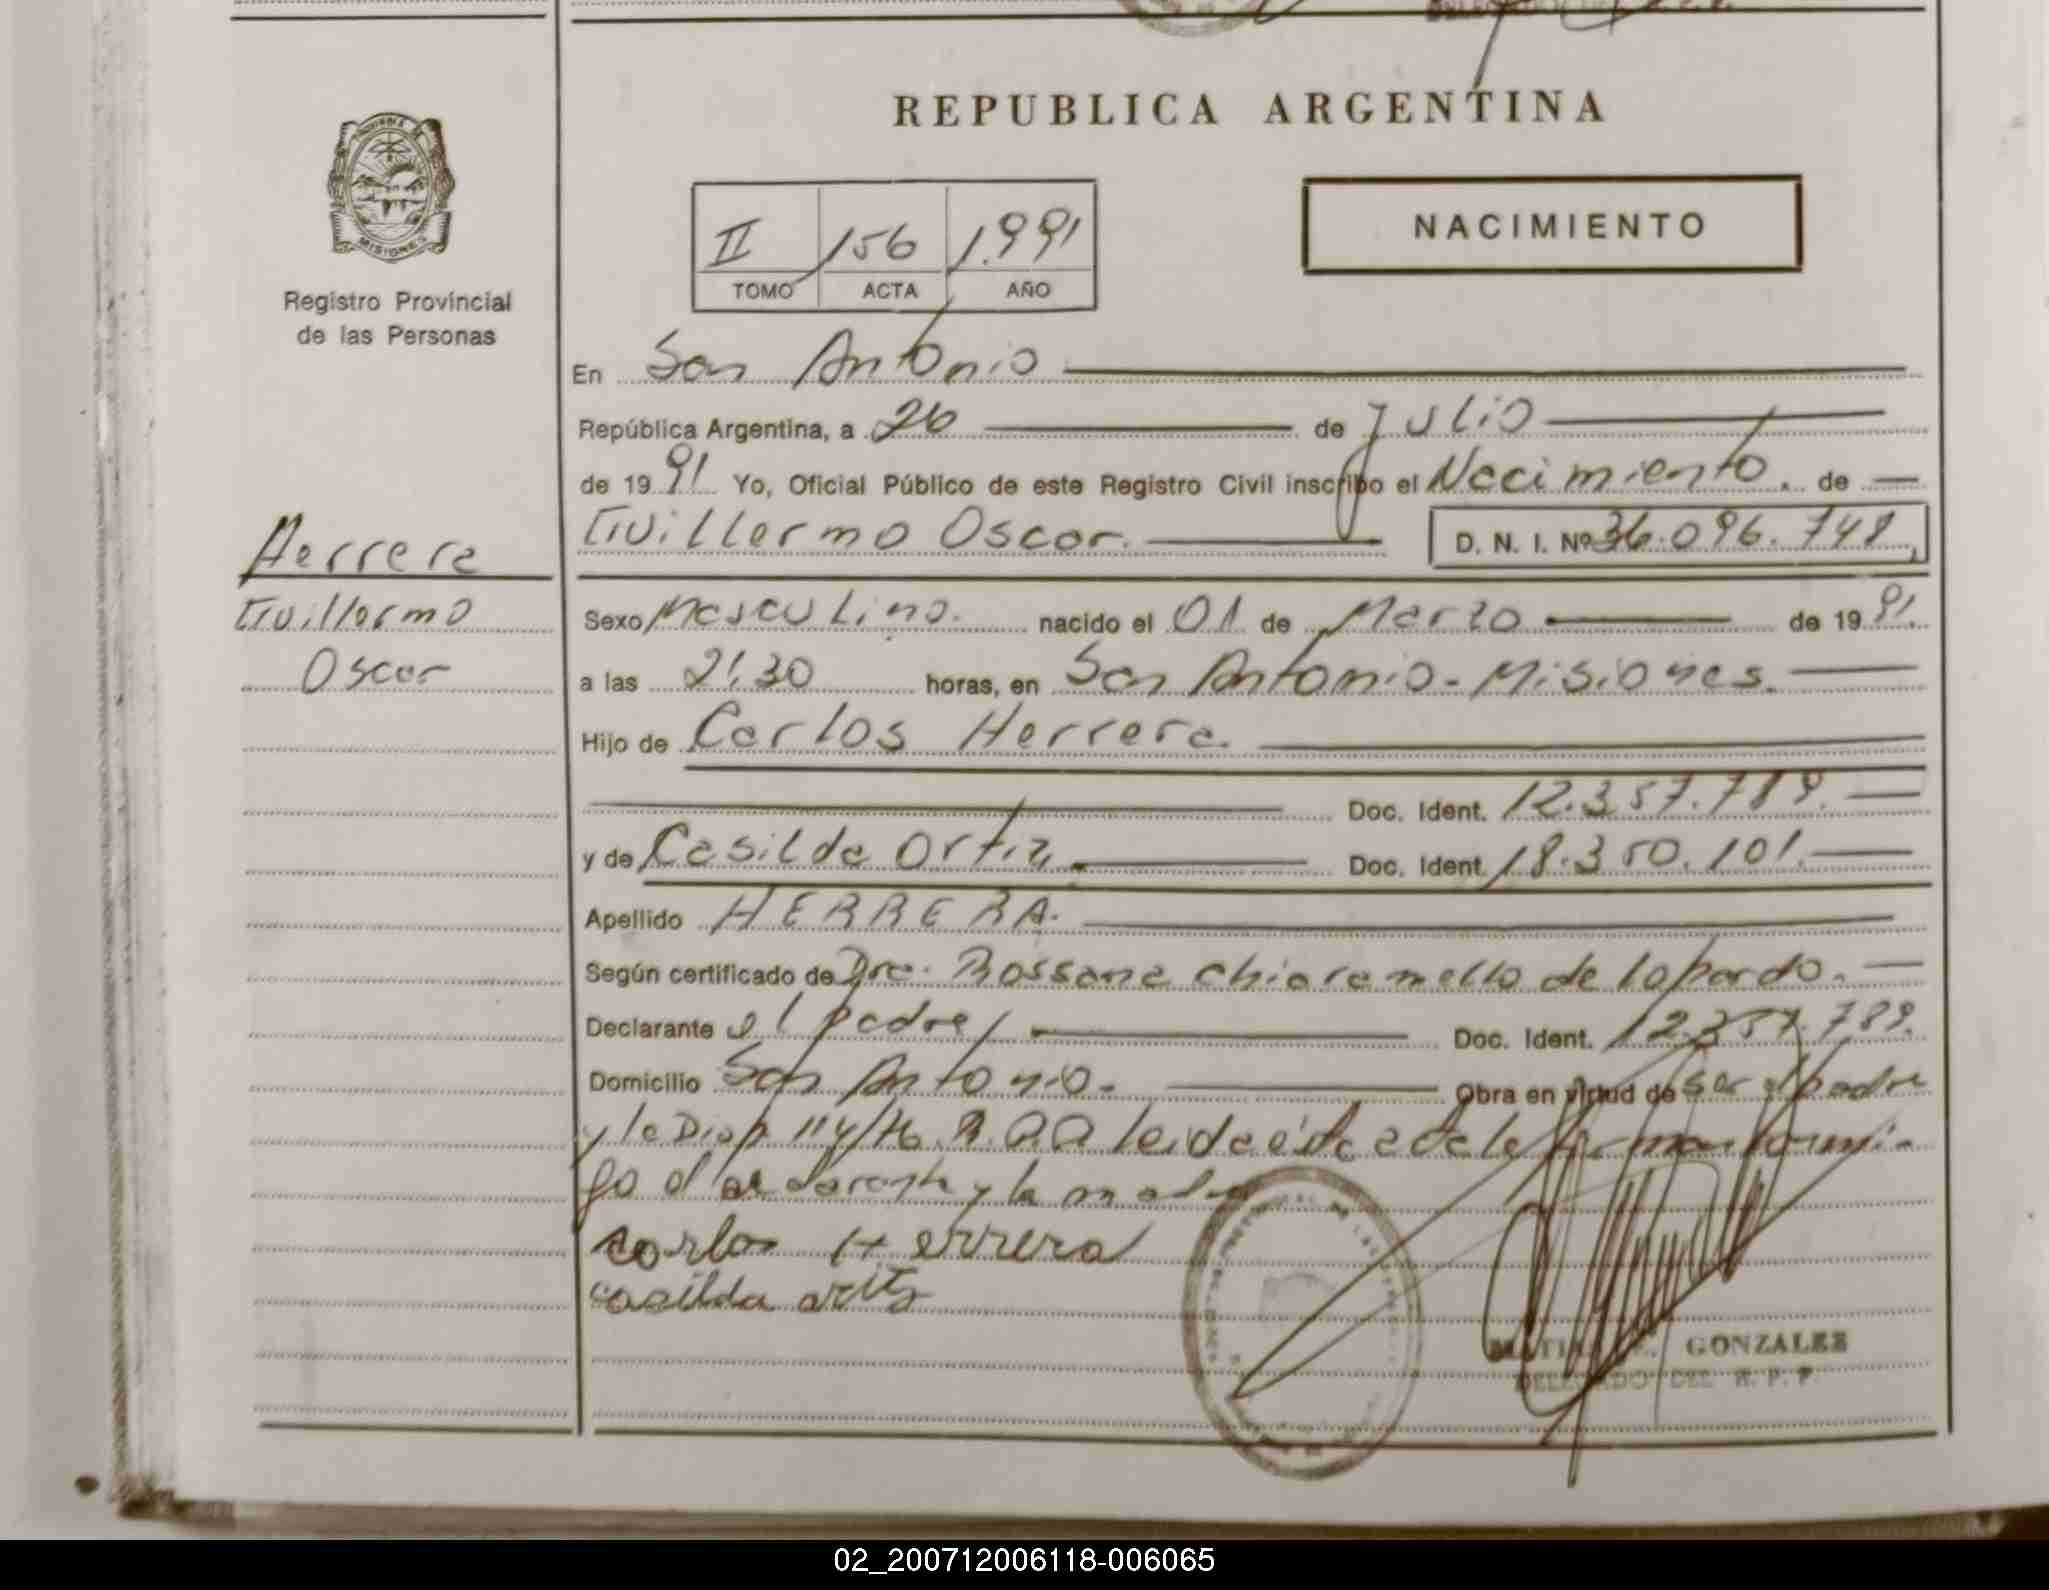 REPUBLICA ARGENTINA
MISIONES
Registro Provincial
de las Personas
II 156 1.991
TOMO ACTA AÑO
NACIMIENTO
En San Antonio
República Argentina, a 26 de Julio
de 19 91 Yo, Oficial Público de este Registro Civil inscribo el Nacimiento. de
Guillermo Oscar. D. N. I. Nº 36.096.748
Herrera
Guillermo
Oscar
Sexo Masculino. nacido el 01 de Marzo de 19 91.
a las 21,30 horas, en San Antonio - Misiones.
Hijo de Carlos Herrera.
Doc. Ident. 12.357.789.
y de Casilda Ortiz, Doc. Ident. 18.350.101.
Apellido HERRERA.
Según certificado de Dra. Rossana Chiaramello de Lopardo.
Declarante el padre Doc. Ident. 12.357.789.
Domicilio San Antonio. Obra en virtud de ser el padre
y la Disp 114/76. R.P.P leida el acta la firman conmi-
go el declarante y la madre
carlos Herrera
casilda ortiz
GONZALEZ
DEL R. P. P
02_200712006118-006065